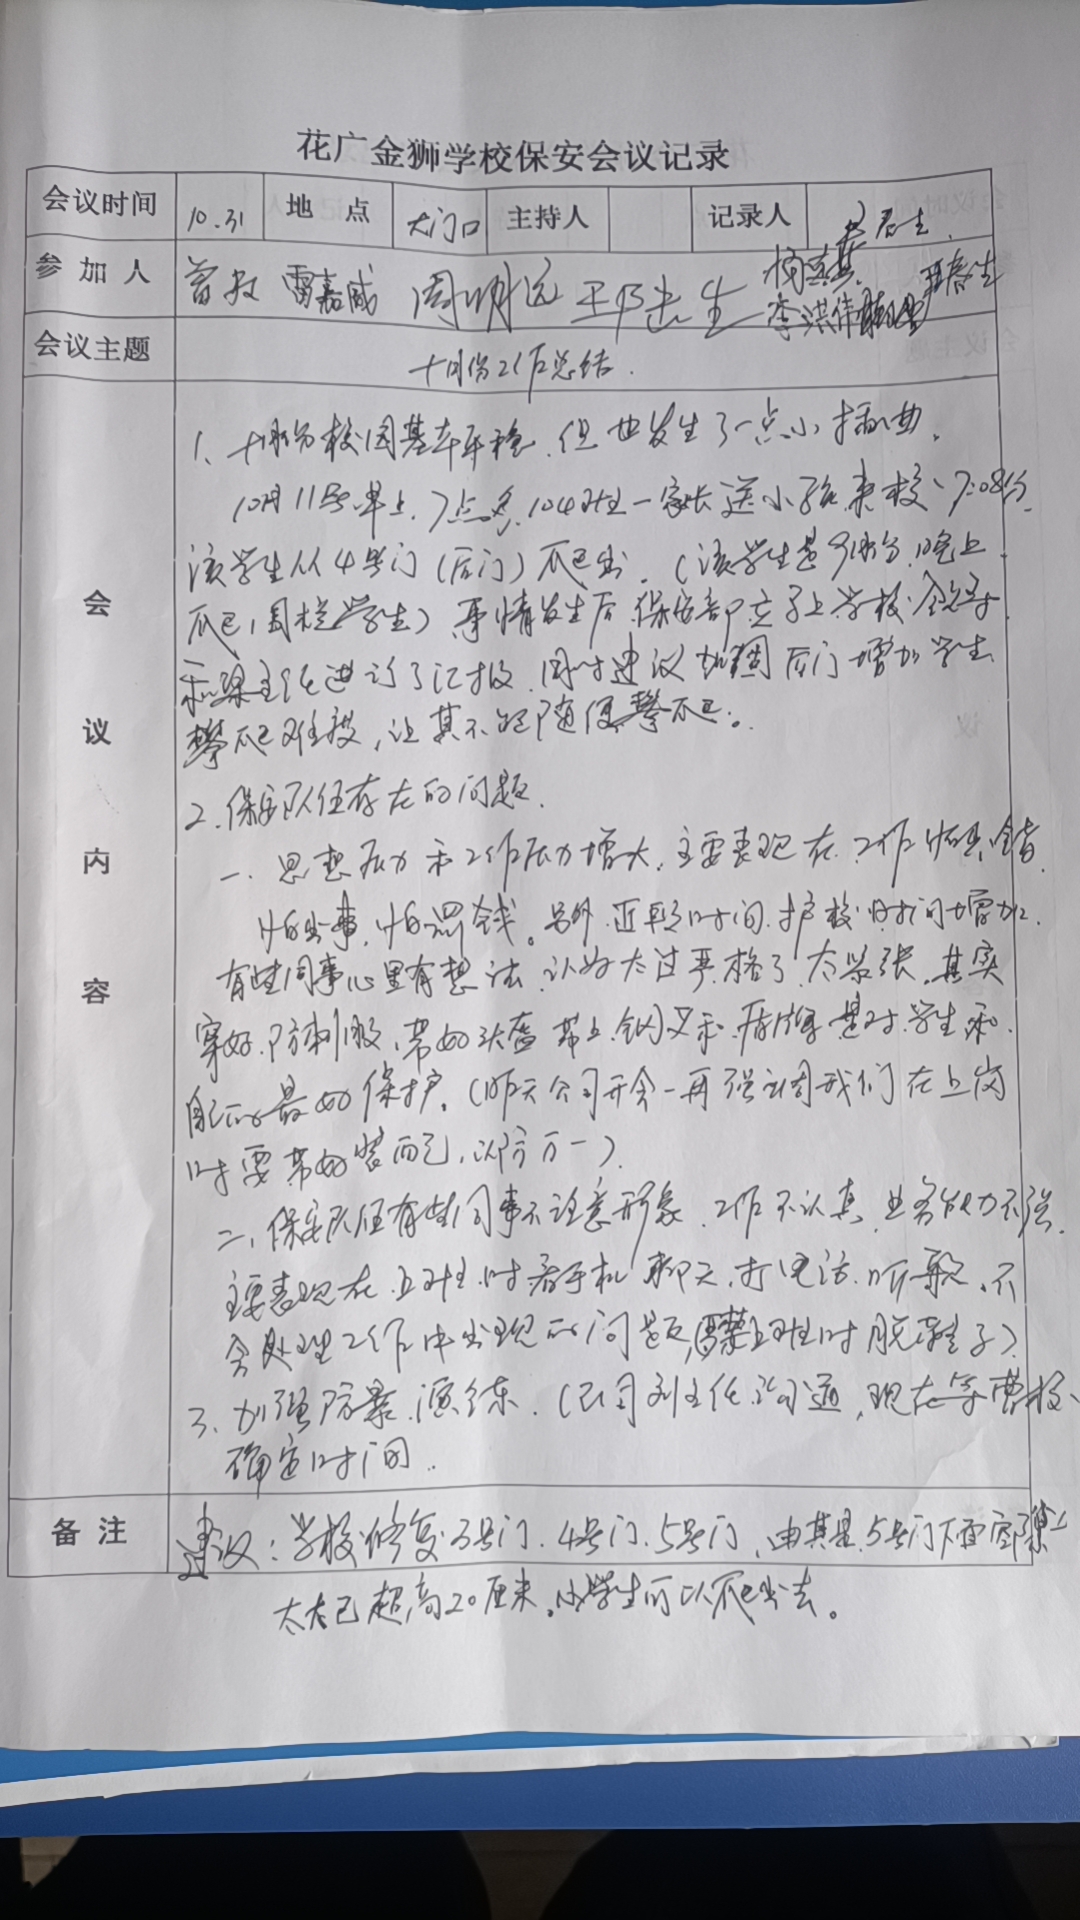 花广金狮学校保安会议记录
会议时间 10.31 地点 大门口 主持人 记录人
参加人 曾 雷嘉威 周明远 李洪伟
会议主题 十月份工作总结.
会议内容
1、十月份校园基本平稳,但也发生了一点小插曲,
10月11号早上7点多,104班一家长送小孩来校、7:08分
该学生从4号门(后门)爬出.(该学生是9月份晚上
爬围栏学生)事情发生后,保安部立
和梁主任进行了汇报,同时建议加固后门增加学生
攀爬难度,让其不能随便攀爬。
2.保安队伍存在的问题.
一.思想压力和工作压力增大,主要表现在工作怕出错
怕出事,怕罚钱。另外,近段时间,护校时间增加,
有些同事心里有想法,认为太过严格了,太紧张,其实
穿好防刺服,带好头盔带上钢叉和盾牌是对学生和
自己的最好保护。(昨天公司开会一再强调我们在上岗
时要带好装备,以防万一).
二、保安队伍有些同事不注意形象,工作不认真,业务能力不强,
主要表现在上班时看手机聊天,打电话,听歌,不
会处理工作中出现的问题,(严禁上班时脱鞋子).
3、加强防暴演练.(公司刘主任沟通,现在等曹校、
确定时间.
备注 建议:学校修复3号门.4号门.5号门,由其是5号门下面
太大已超高20厘米。小学生可以爬出去。